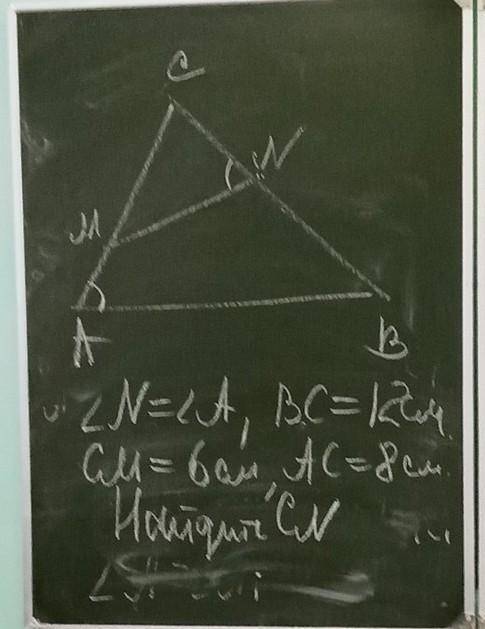 C
N
M
A
B
∠N=∠A, BC=12см.
CM=6см, AC=8см.
Найдите CN